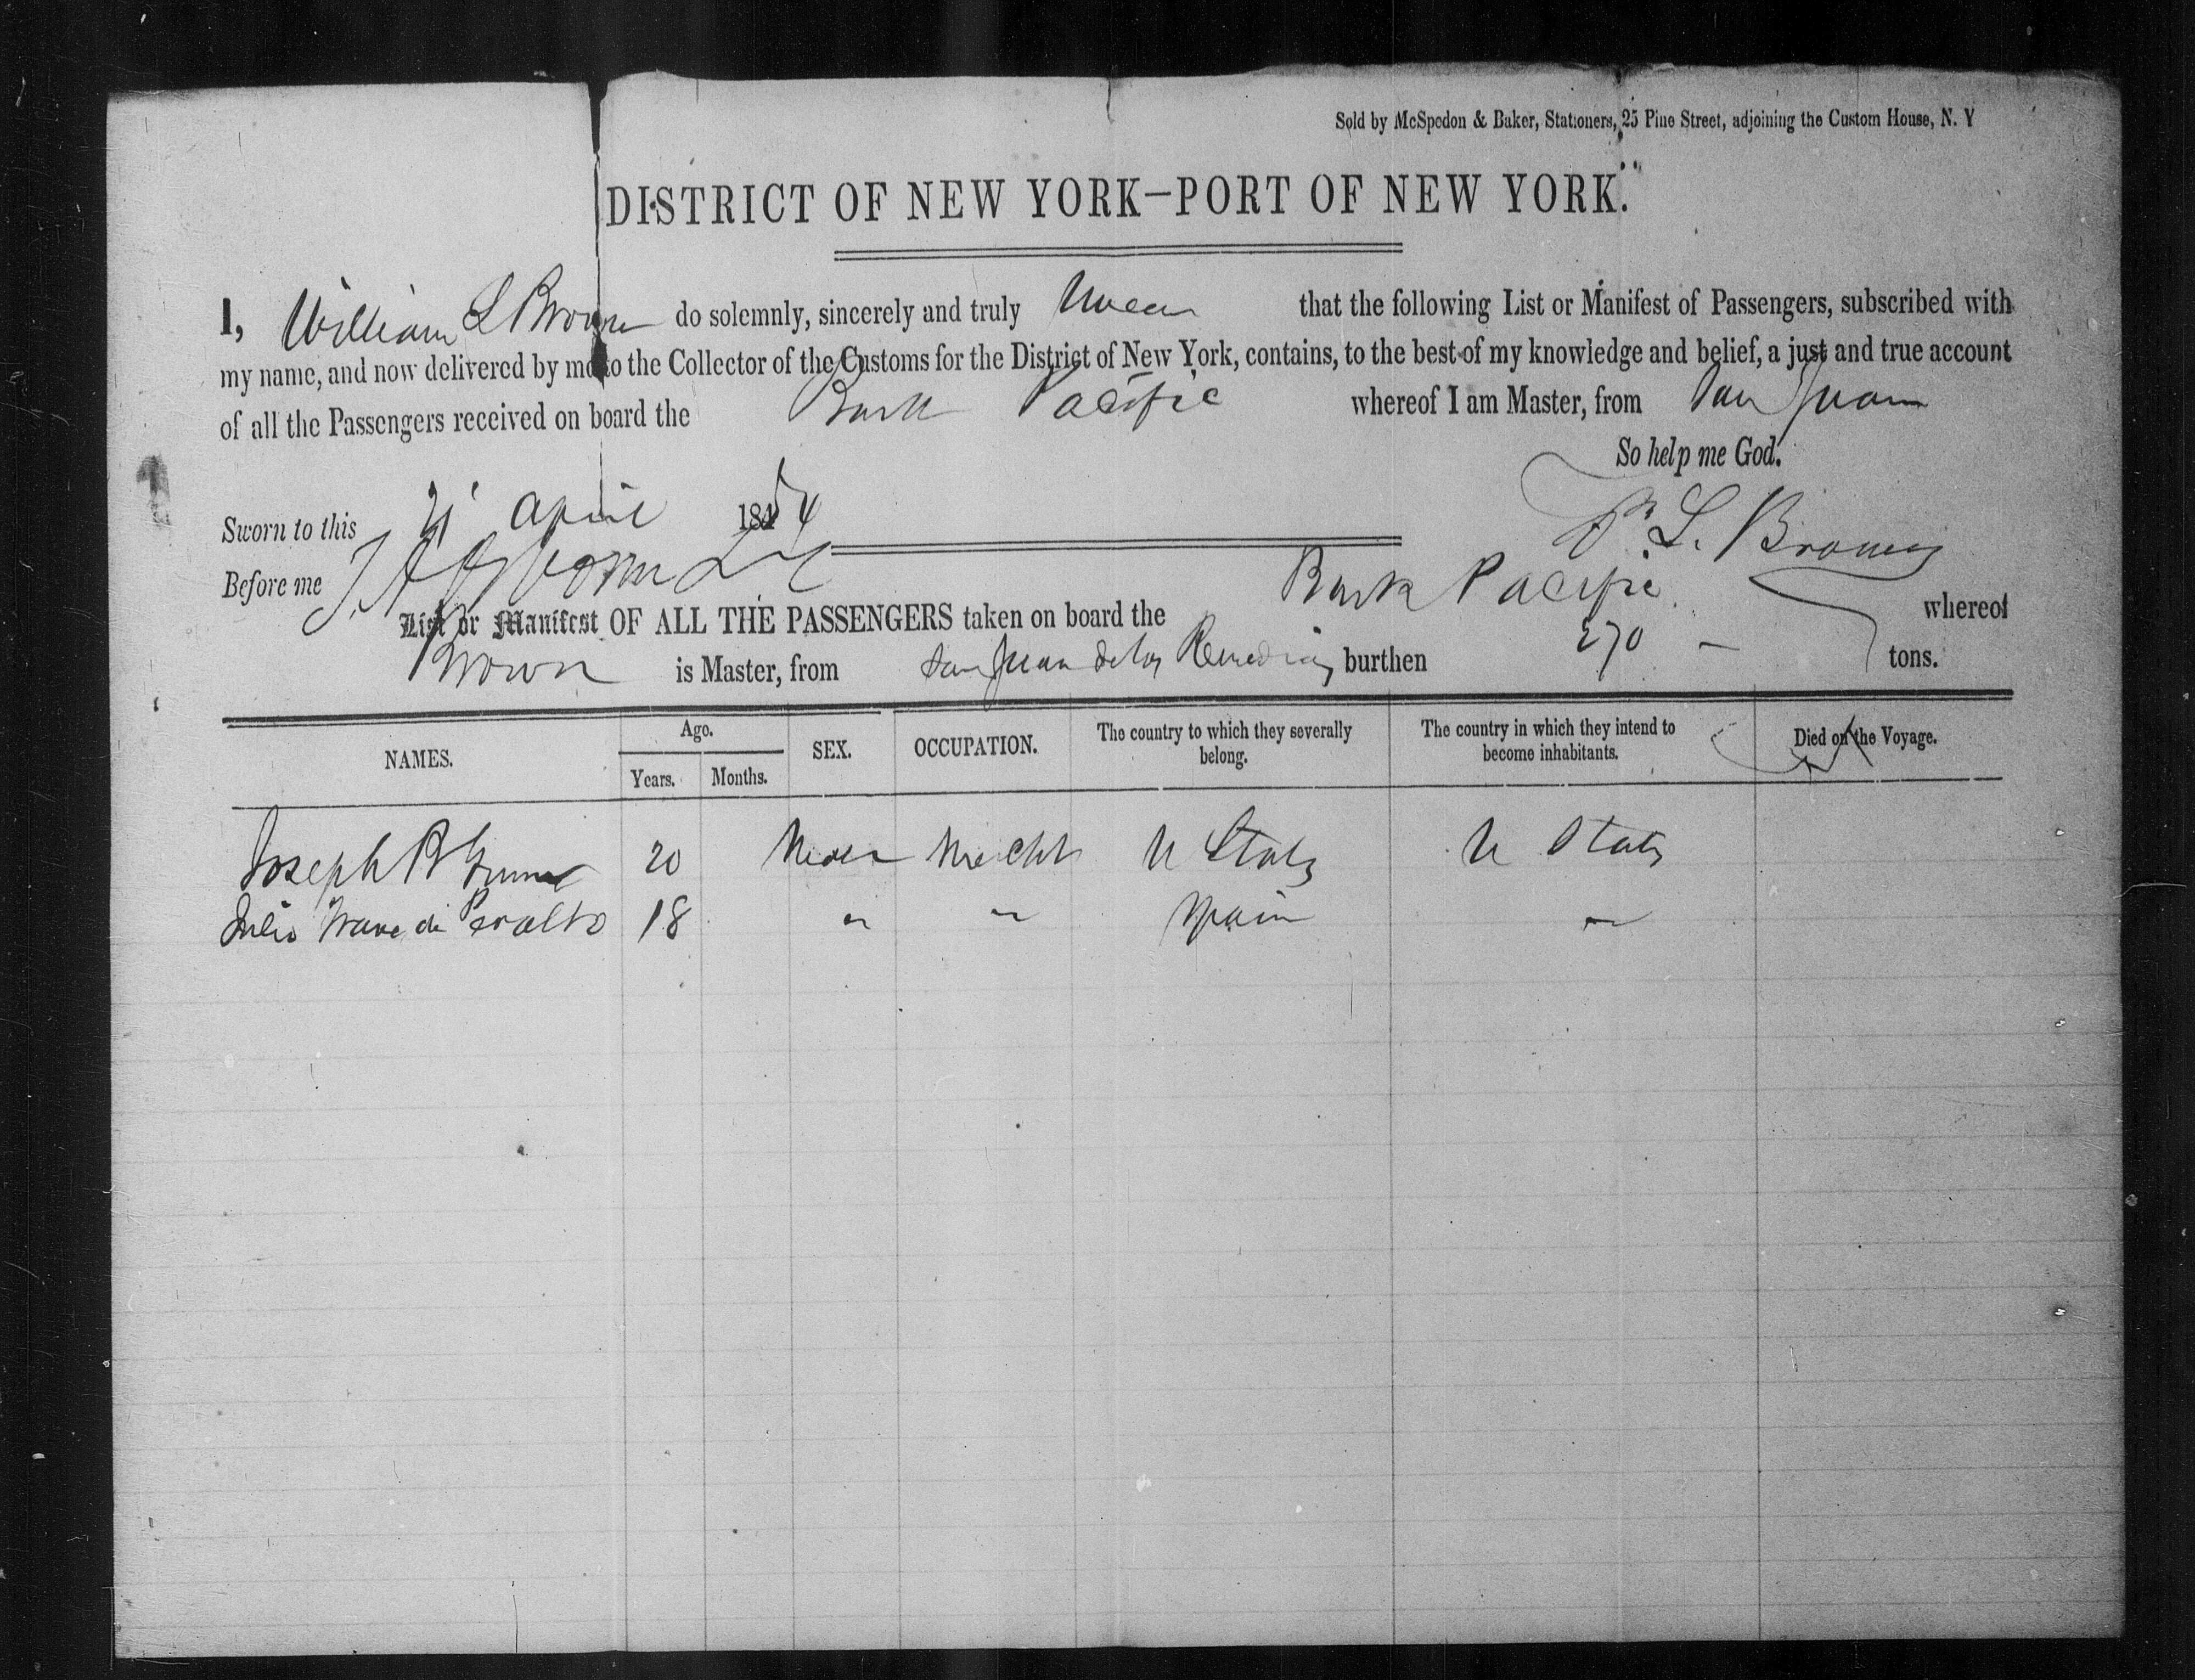 Sold by McSpedon & Baker, Stationers, 25 Pine Street, adjoining the Custom House, N. Y
DISTRICT OF NEW YORK—PORT OF NEW YORK.
I, William L Brown do solemnly, sincerely and truly swear that the following List or Manifest of Passengers, subscribed with
my name, and now delivered by me to the Collector of the Customs for the District of New York, contains, to the best of my knowledge and belief, a just and true account
of all the Passengers received on board the Bark Pacific whereof I am Master, from San Juan
So help me God.
Sworn to this 21 April 1854
L. Brown
Before me
List or Manifest OF ALL THE PASSENGERS taken on board the Bark Pacific whereof
Brown is Master, from San Juan de los Remedios burthen 270 tons.
NAMES. Age. Years. Months. SEX. OCCUPATION. The country to which they severally belong. The country in which they intend to become inhabitants. Died on the Voyage.
Joseph B 20 Mercht U States U States
Julio de Peralto 18 " " Spain "